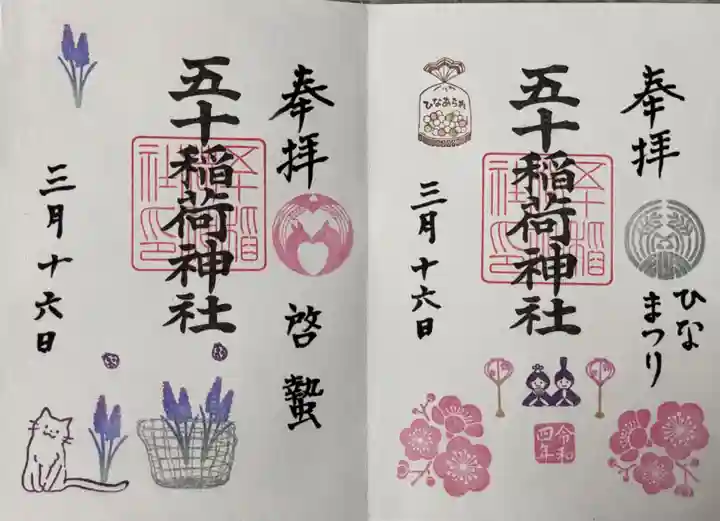 奉拝
啓蟄
五十稲荷神社
三月十六日
奉拝
ひな
まつり
五十稲荷神社
ひなあられ
三月十六日
令和
四年